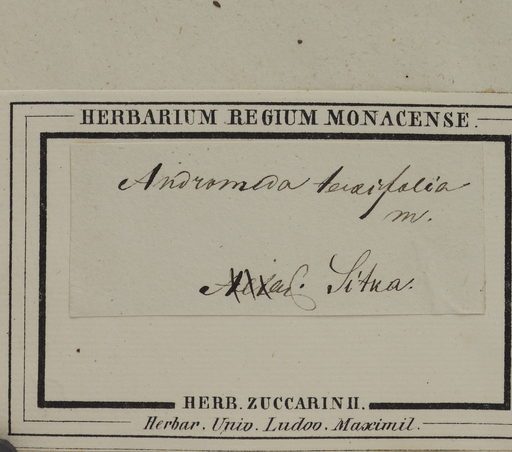 HERBARIUM REGIUM MONACENSE.
Andromeda taxifolia
m.
Sitna.
HERB. ZUCCARINII.
Herbar. Univ. Ludov. Maximil.